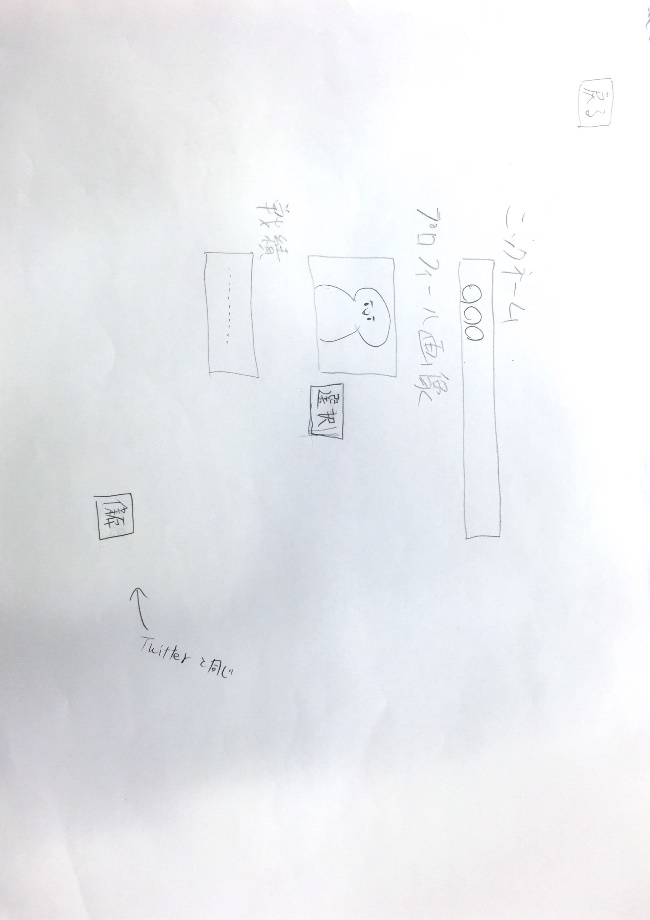 戻る
ニックネーム
○○○
プロフィール画像
選択
戦績
Twitterと同じ